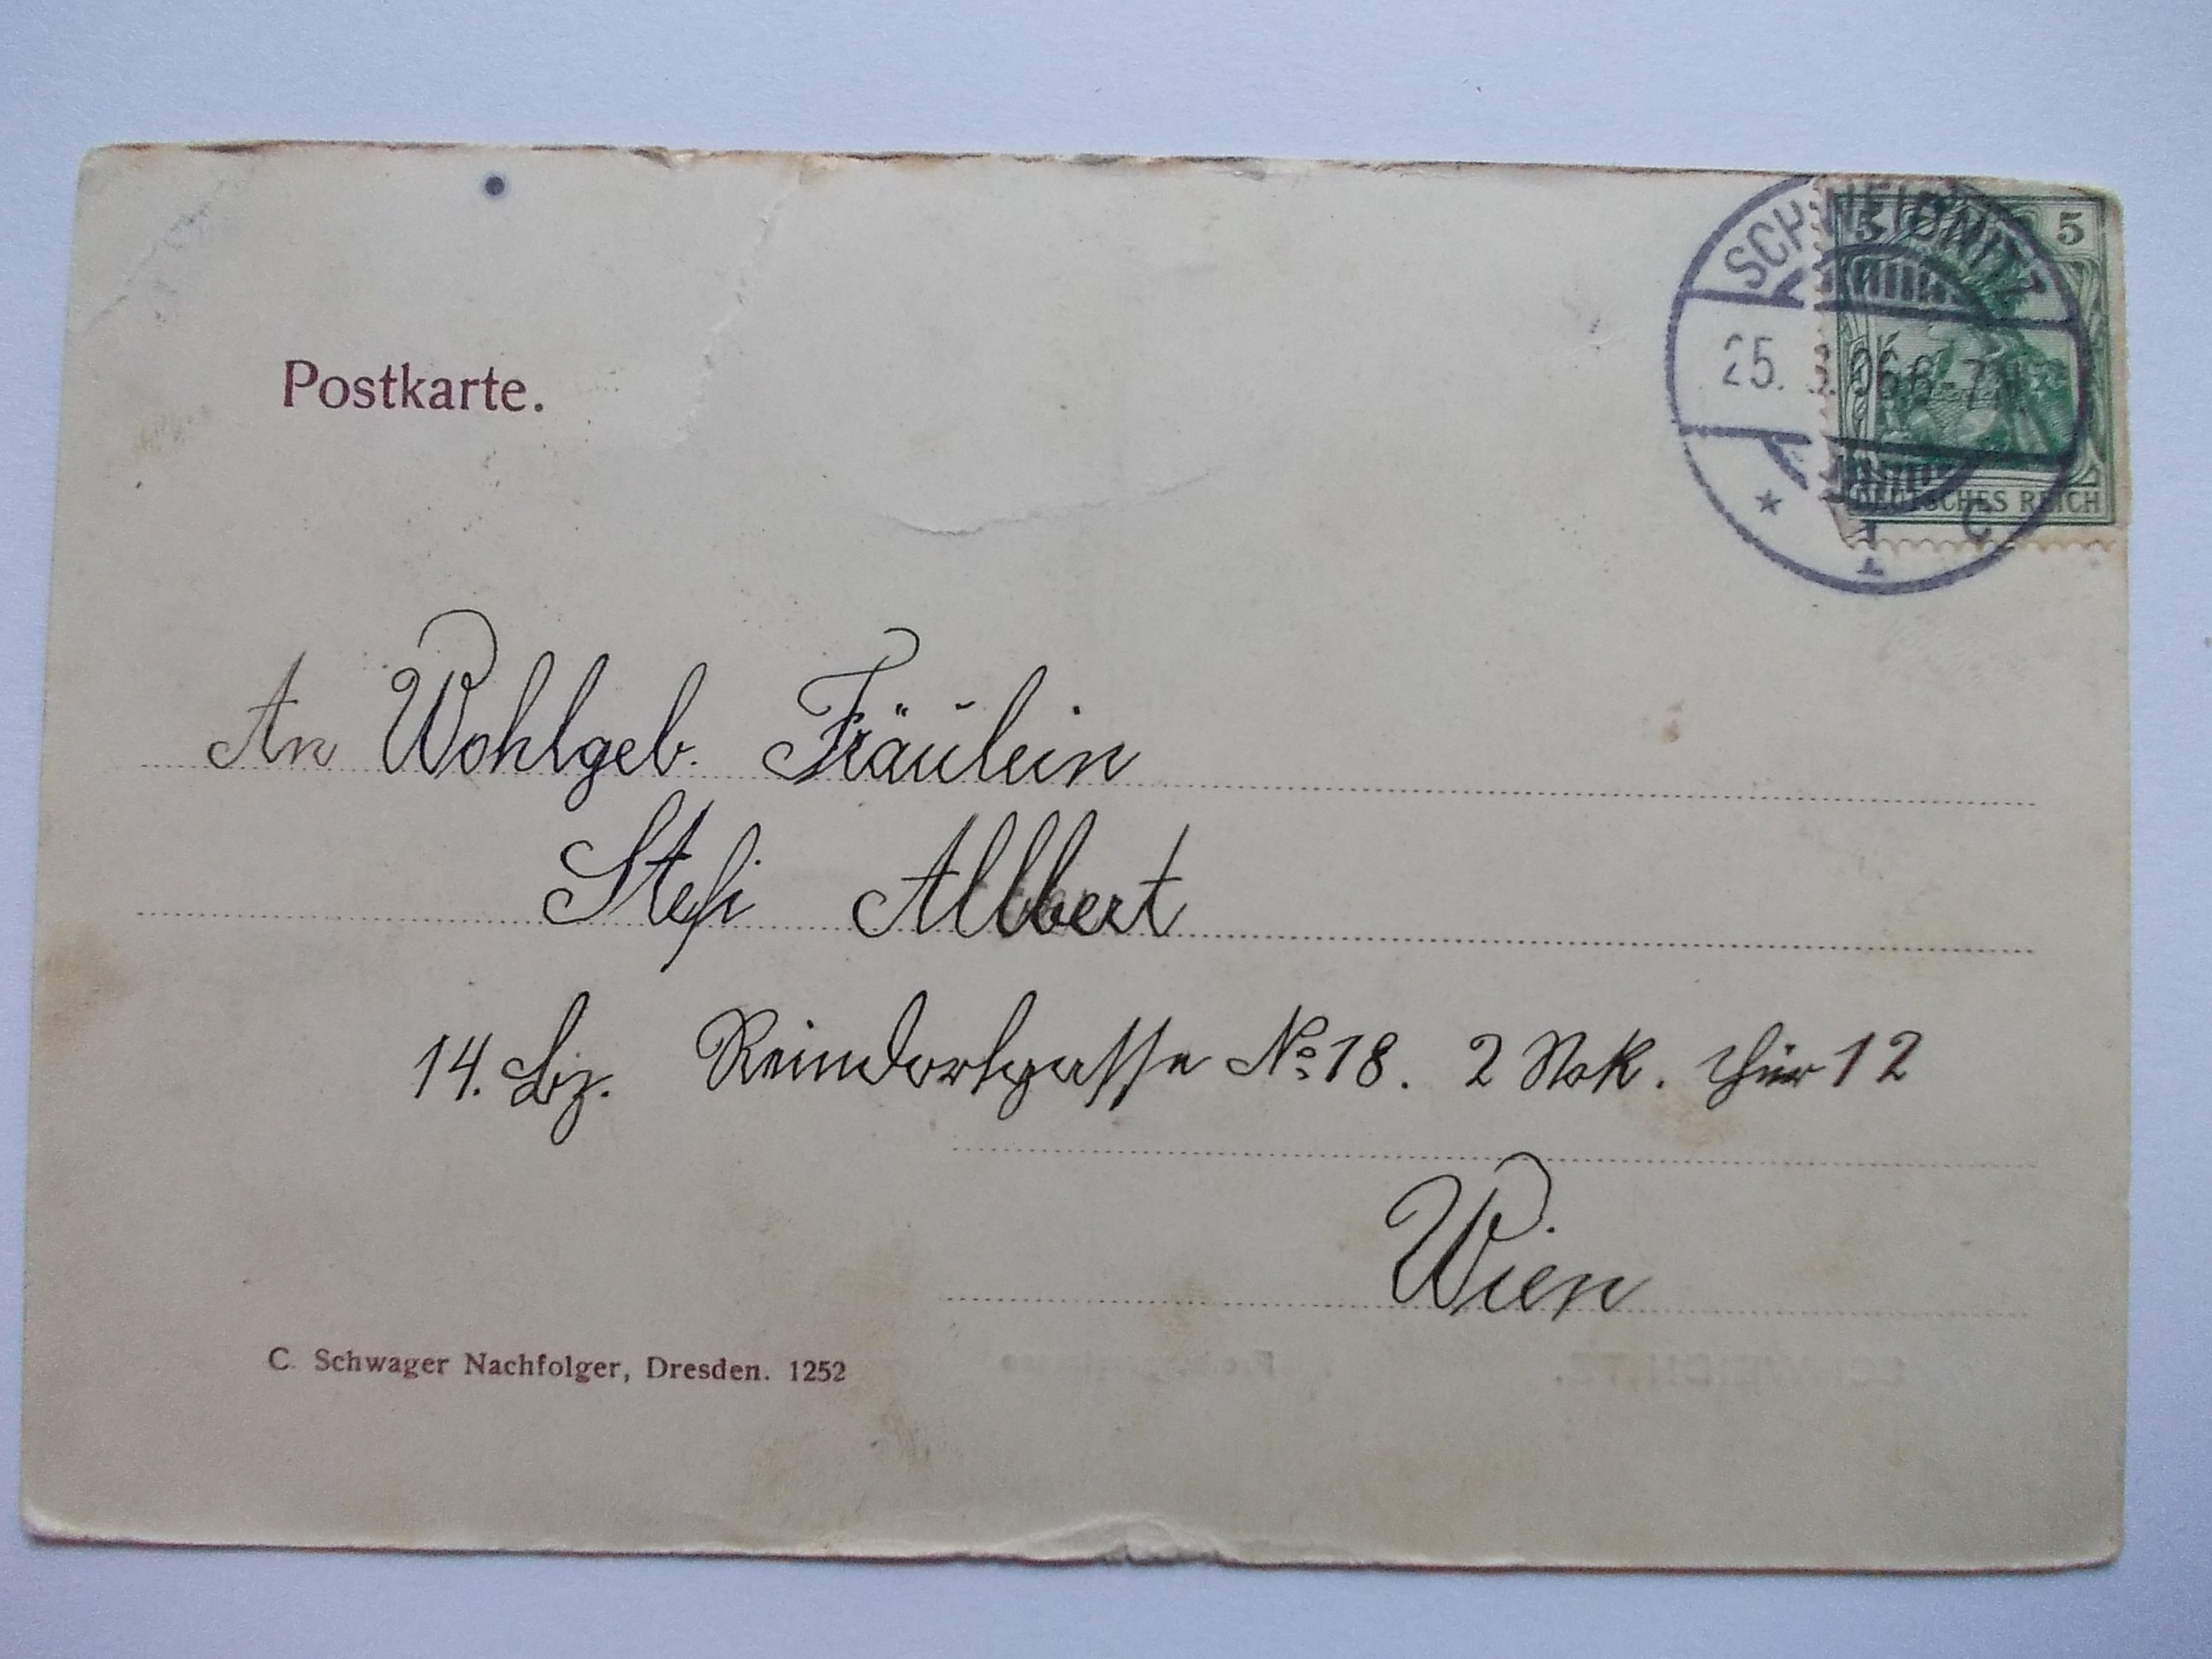 SCHWEIDNITZ
5 5
25. 3. 06 6-7N.
DEUTSCHES REICH
* 1 c
Postkarte.
An Wohlgeb. Fräulein
Stefi Allbert
14. Bz. Reindorfgasse No: 18. 2 Stok. Thür 12
Wien
C. Schwager Nachfolger, Dresden. 1252